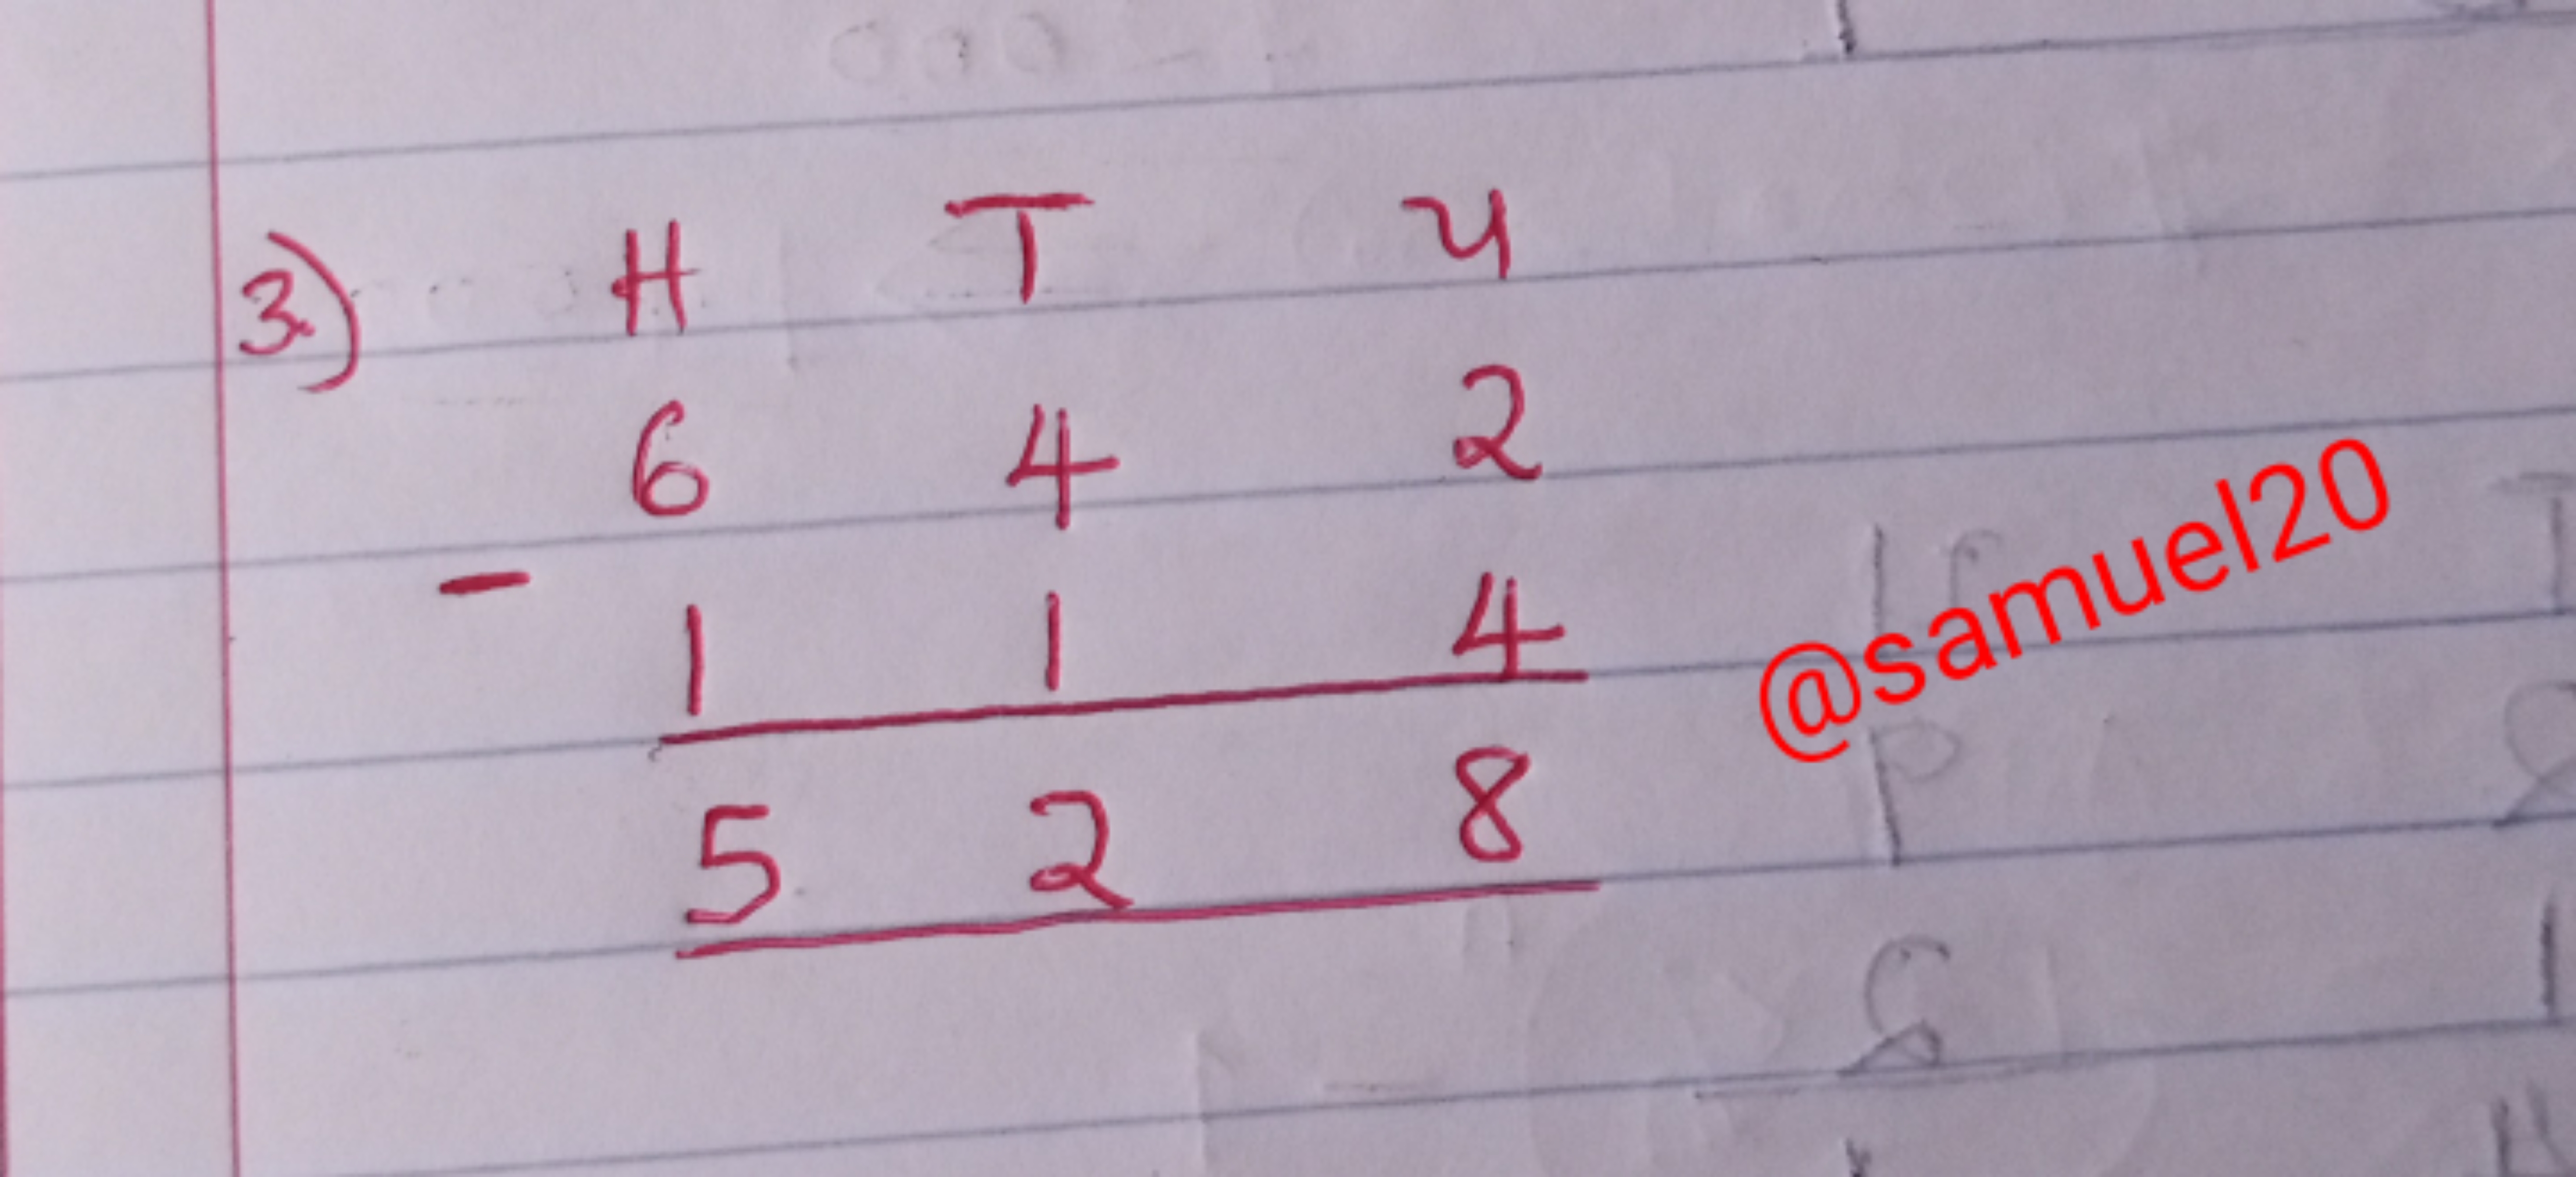 3) H T U
6 4 2
-
1 1 4
5 2 8
@samuel20